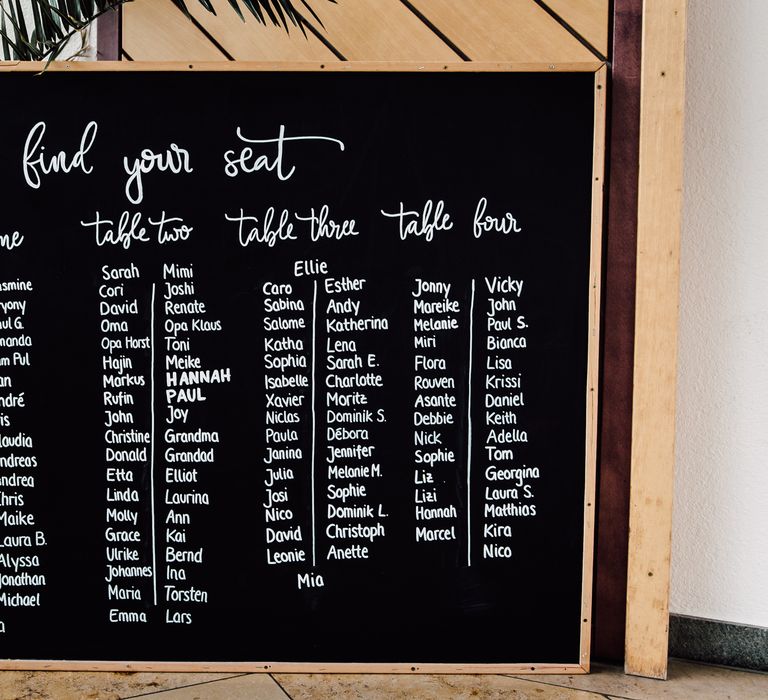 find your seat
table two
Sarah Mimi
Cori Joshi
David Renate
Oma Opa Klaus
Opa Horst Toni
Hajin Meike
Markus HANNAH
Rufin PAUL
John Joy
Christine Grandma
Donald Grandad
Etta Elliot
Linda Laurina
Molly Ann
Grace Kai
Ulrike Bernd
Johannes Ina
Maria Torsten
Emma Lars
table three
Ellie
Caro Esther
Sabina Andy
Salome Katherina
Katha Lena
Sophia Sarah E.
Isabelle Charlotte
Xavier Moritz
Niclas Dominik S.
Paula Débora
Janina Jennifer
Julia Melanie M.
Josi Sophie
Nico Dominik L.
David Christoph
Leonie Anette
Mia
table four
Jonny Vicky
Mareike John
Melanie Paul S.
Miri Bianca
Flora Lisa
Rouven Krissi
Asante Daniel
Debbie Keith
Nick Adella
Sophie Tom
Liz Georgina
Lizi Laura S.
Hannah Matthias
Marcel Kira
Nico
Maike
Laura B.
Alyssa
Jonathan
Michael